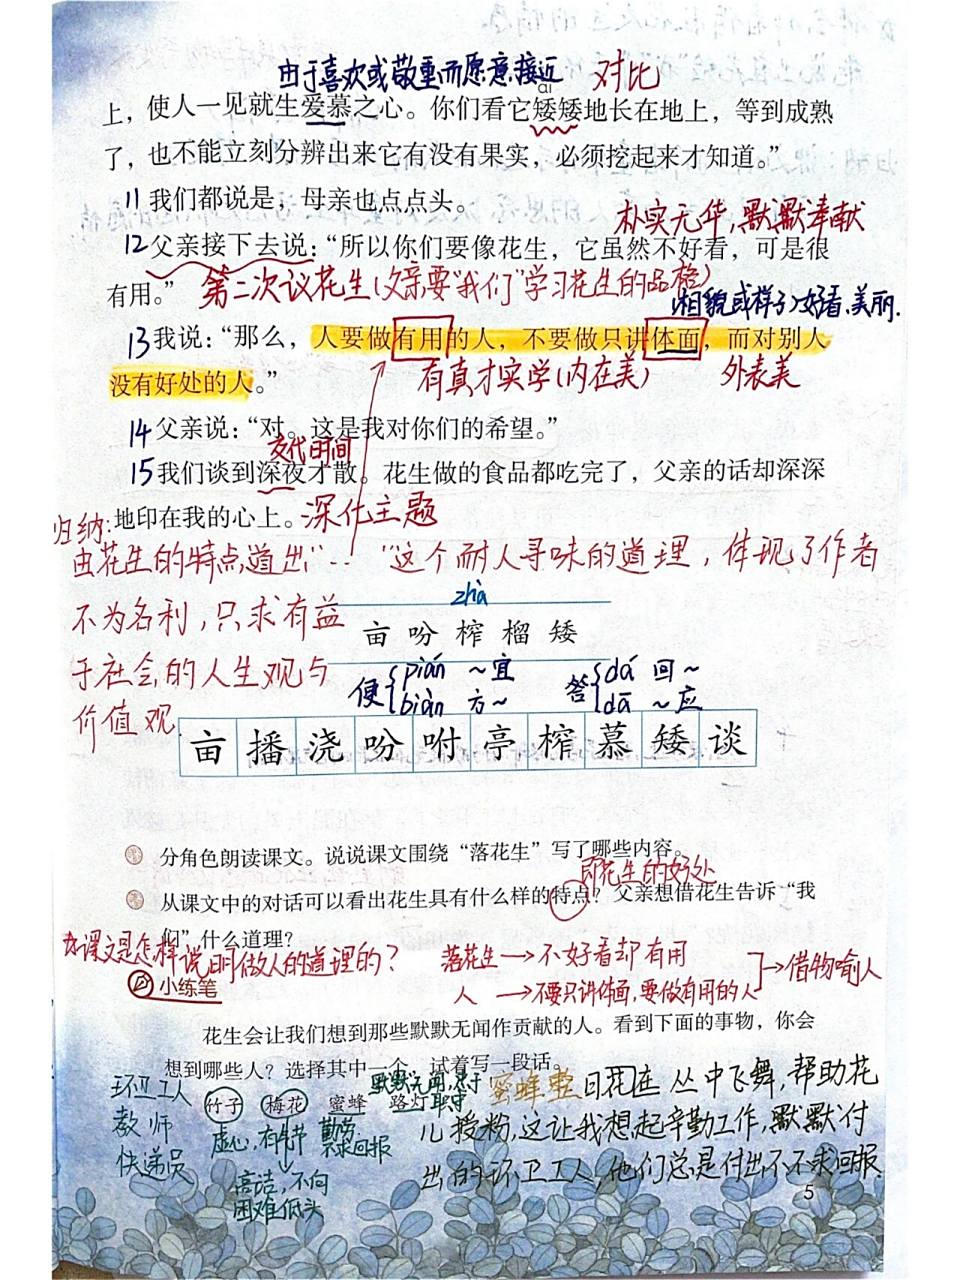 由于喜欢或敬重而愿意接近 对比
ǎi
上，使人一见就生爱慕之心。你们看它矮矮地长在地上，等到成熟
了，也不能立刻分辨出来它有没有果实，必须挖起来才知道。”
11 我们都说是，母亲也点点头。
朴实无华，默默奉献
12 父亲接下去说：“所以你们要像花生，它虽然不好看，可是很
有用。” 第二次议花生(父亲要“我们”学习花生的品格)
(相貌或样子)好看.美丽.
13 我说：“那么，人要做有用的人，不要做只讲体面，而对别人
没有好处的人。” 有真才实学(内在美) 外表美
14 父亲说：“对。这是我对你们的希望。”
交代时间
15 我们谈到深夜才散。花生做的食品都吃完了，父亲的话却深深
地印在我的心上。深化主题
归纳：
由花生的特点道出“…”这个耐人寻味的道理，体现了作者
不为名利，只求有益
于社会的人生观与
价值观.
zhà
亩 吩 榨 榴 矮
便{pián ～宜 biàn 方～ 答{dá 回～ dā ～应
亩 播 浇 吩 咐 亭 榨 慕 矮 谈
分角色朗读课文。说说课文围绕“落花生”写了哪些内容。
即花生的好处
从课文中的对话可以看出花生具有什么样的特点？父亲想借花生告诉“我
们”什么道理？
☆课文是怎样说明做人的道理的？
落花生→不好看却有用
人→不要只讲体面，要做有用的人
→借物喻人
小练笔
花生会让我们想到那些默默无闻作贡献的人。看到下面的事物，你会
想到哪些人？选择其中一个，试着写一段话。
竹子 梅花 蜜蜂 路灯
环卫工人
教师
快递员
虚心，有气节
高洁，不向
困难低头
勤劳
不求回报
默默无闻，忠于
职守
蜜蜂整日花在丛中飞舞，帮助花
儿授粉，这让我想起辛勤工作，默默付
出的环卫工人，他们总是付出不求回报.
5